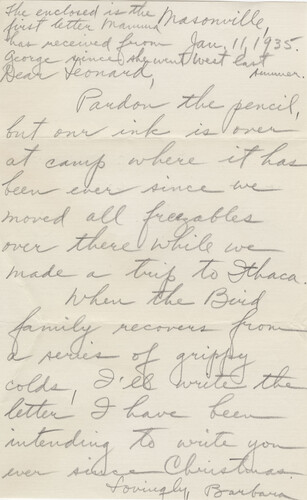 The enclosed is the
first letter Mamma
has received from
George since she went west last
summer.
Masonville,
Jan. 11, 1935.
Dear Leonard,
Pardon the pencil,
but our ink is over
at camp where it has
been ever since we
moved all freezables
over there while we
made a trip to Ithaca.
When the Bird
family recovers from
a series of grippy
colds, I'll write the
letter I have been
intending to write you
ever since Christmas.
Lovingly, Barbara